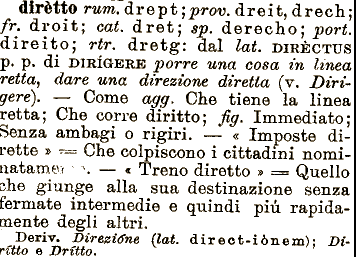 dirètto rum. drept; prov. dreit, drech;
fr. droit; cat. dret; sp. derecho; port.
direito; rtr. dretg: dal lat. DIRÈCTUS
p. p. di DIRÍGERE porre una cosa in linea
retta, dare una direzione diretta (v. Diri-
gere). — Come agg. Che tiene la linea
retta; Che corre diritto; fig. Immediato;
Senza ambagi o rigiri. — « Imposte di-
rette » = Che colpiscono i cittadini nomi-
— « Treno diretto » = Quello
che giunge alla sua destinazione senza
fermate intermedie e quindi piú rapida-
mente degli altri.
Deriv. Direzióne (lat. direct-iònem); Di-
rítto e Drítto.